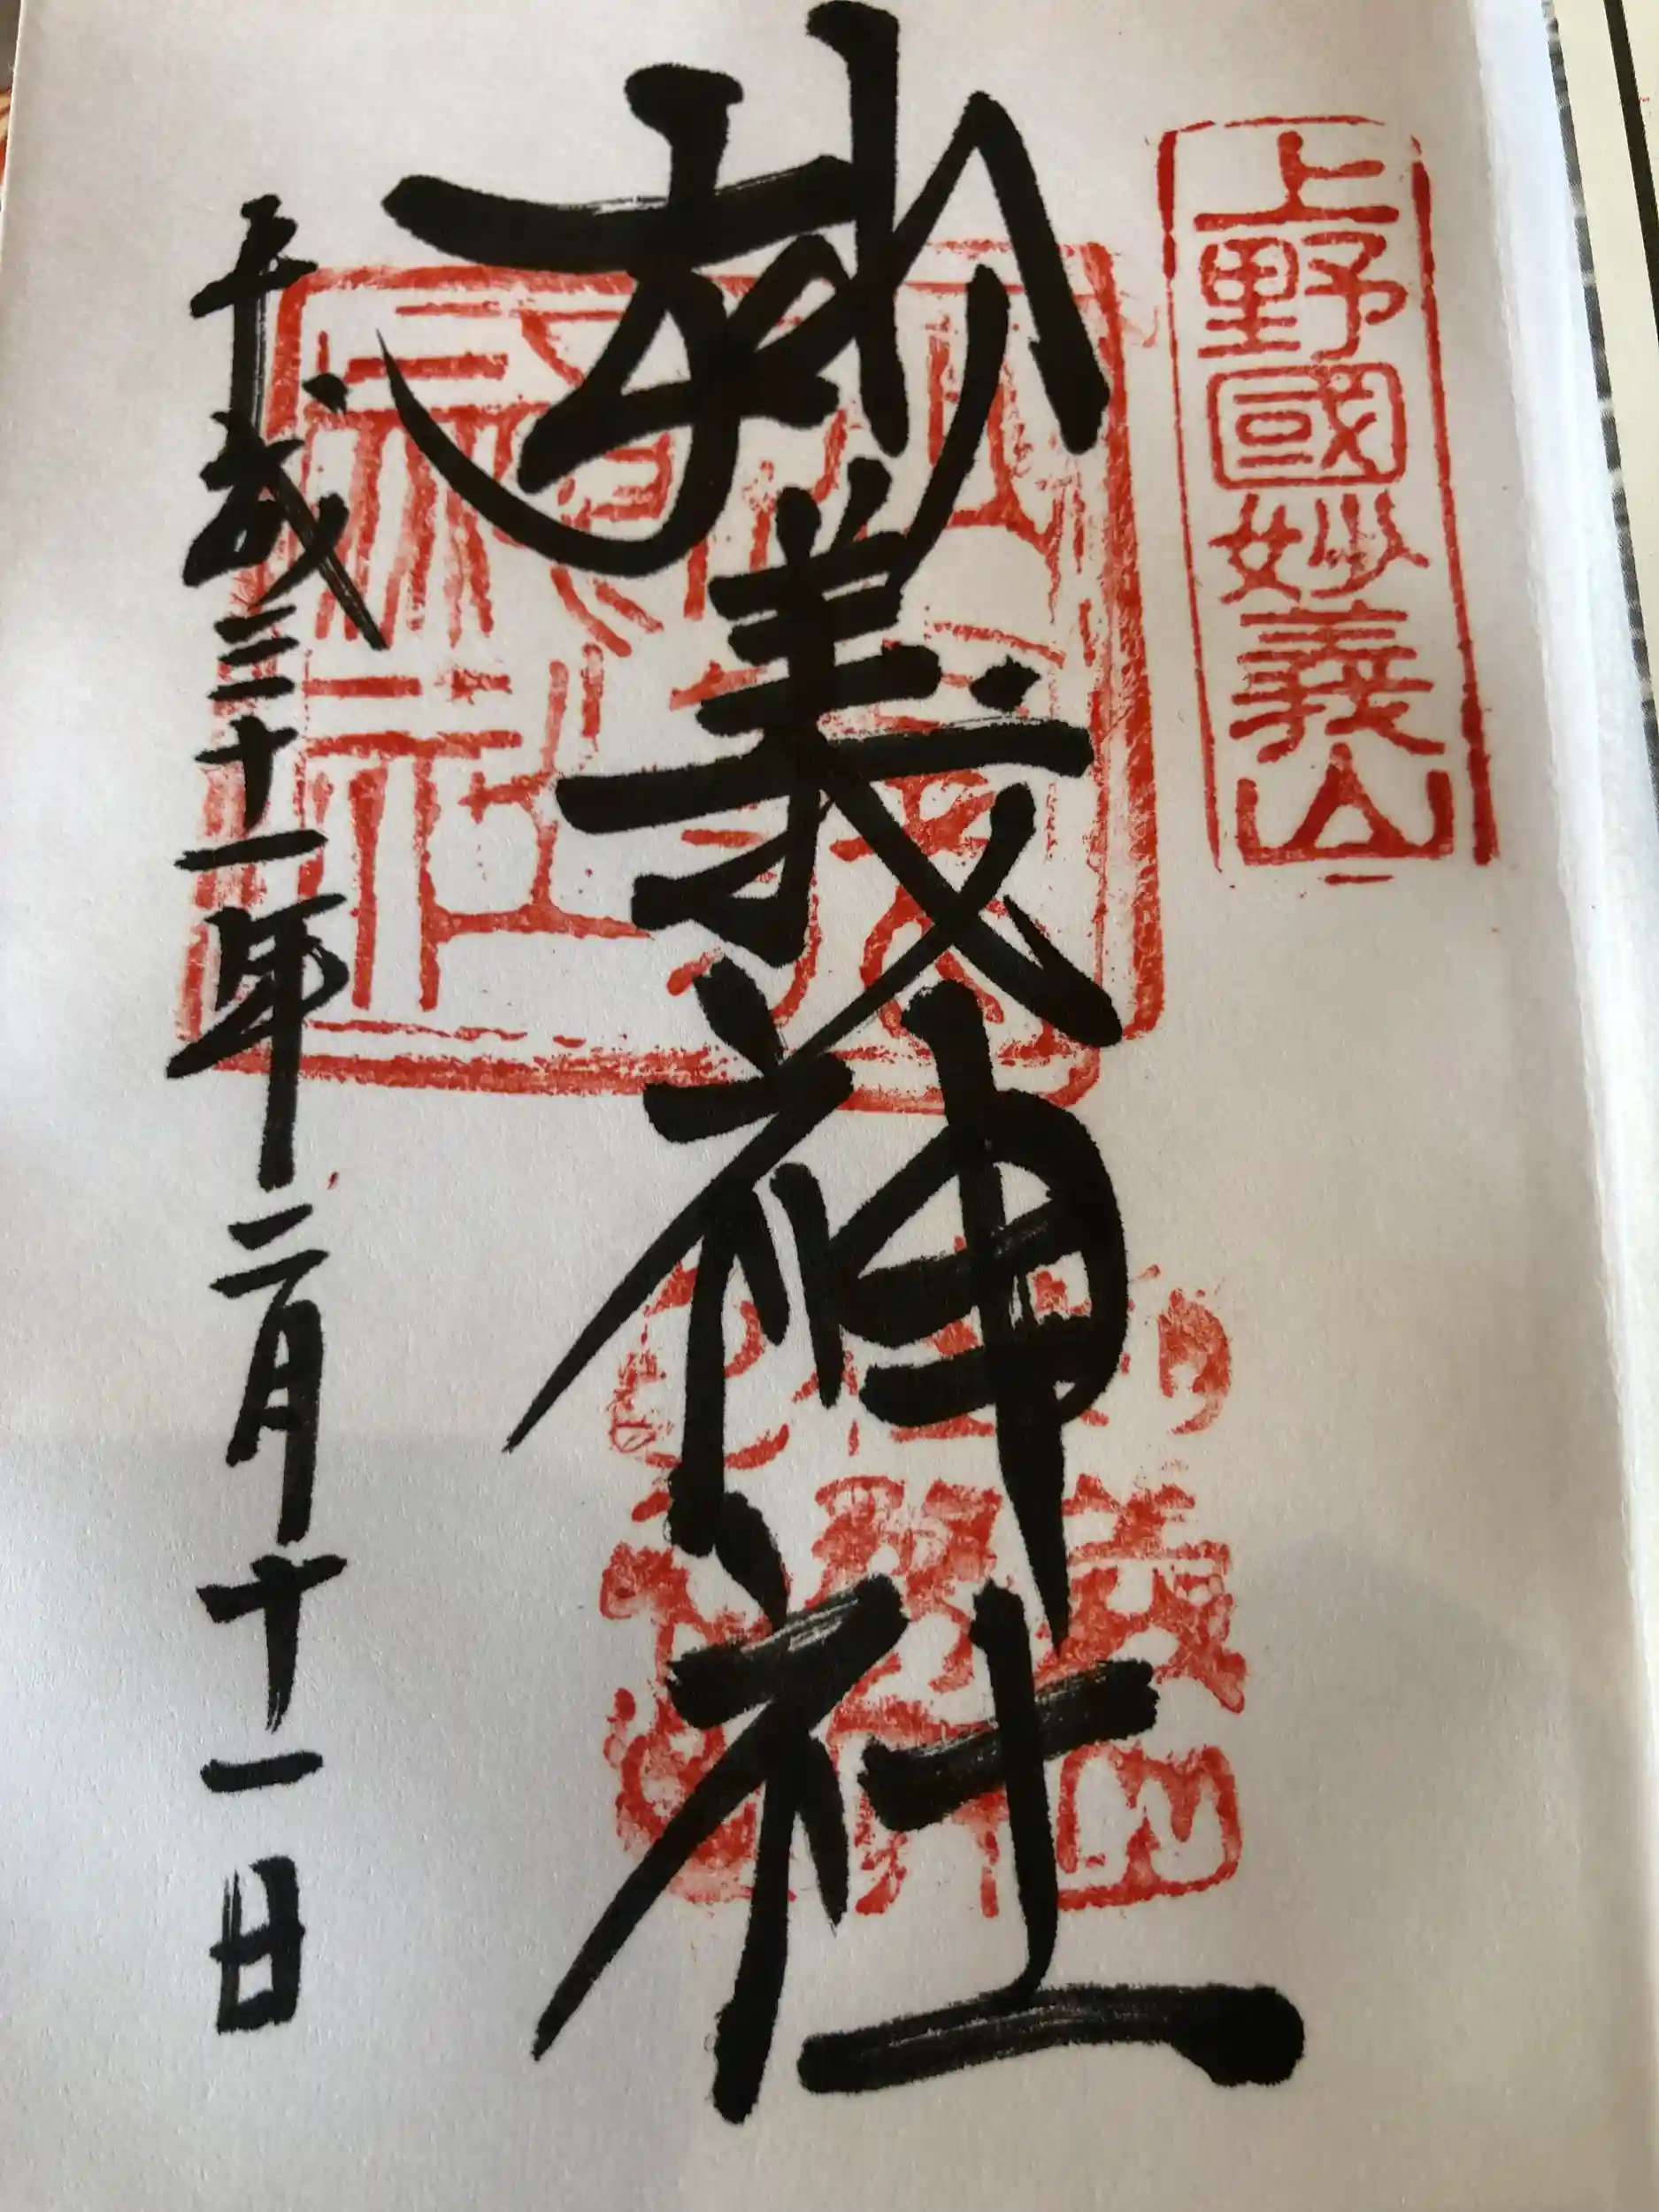 上野國妙義山
妙義神社
平成三十一年二月十一日
妙義神社